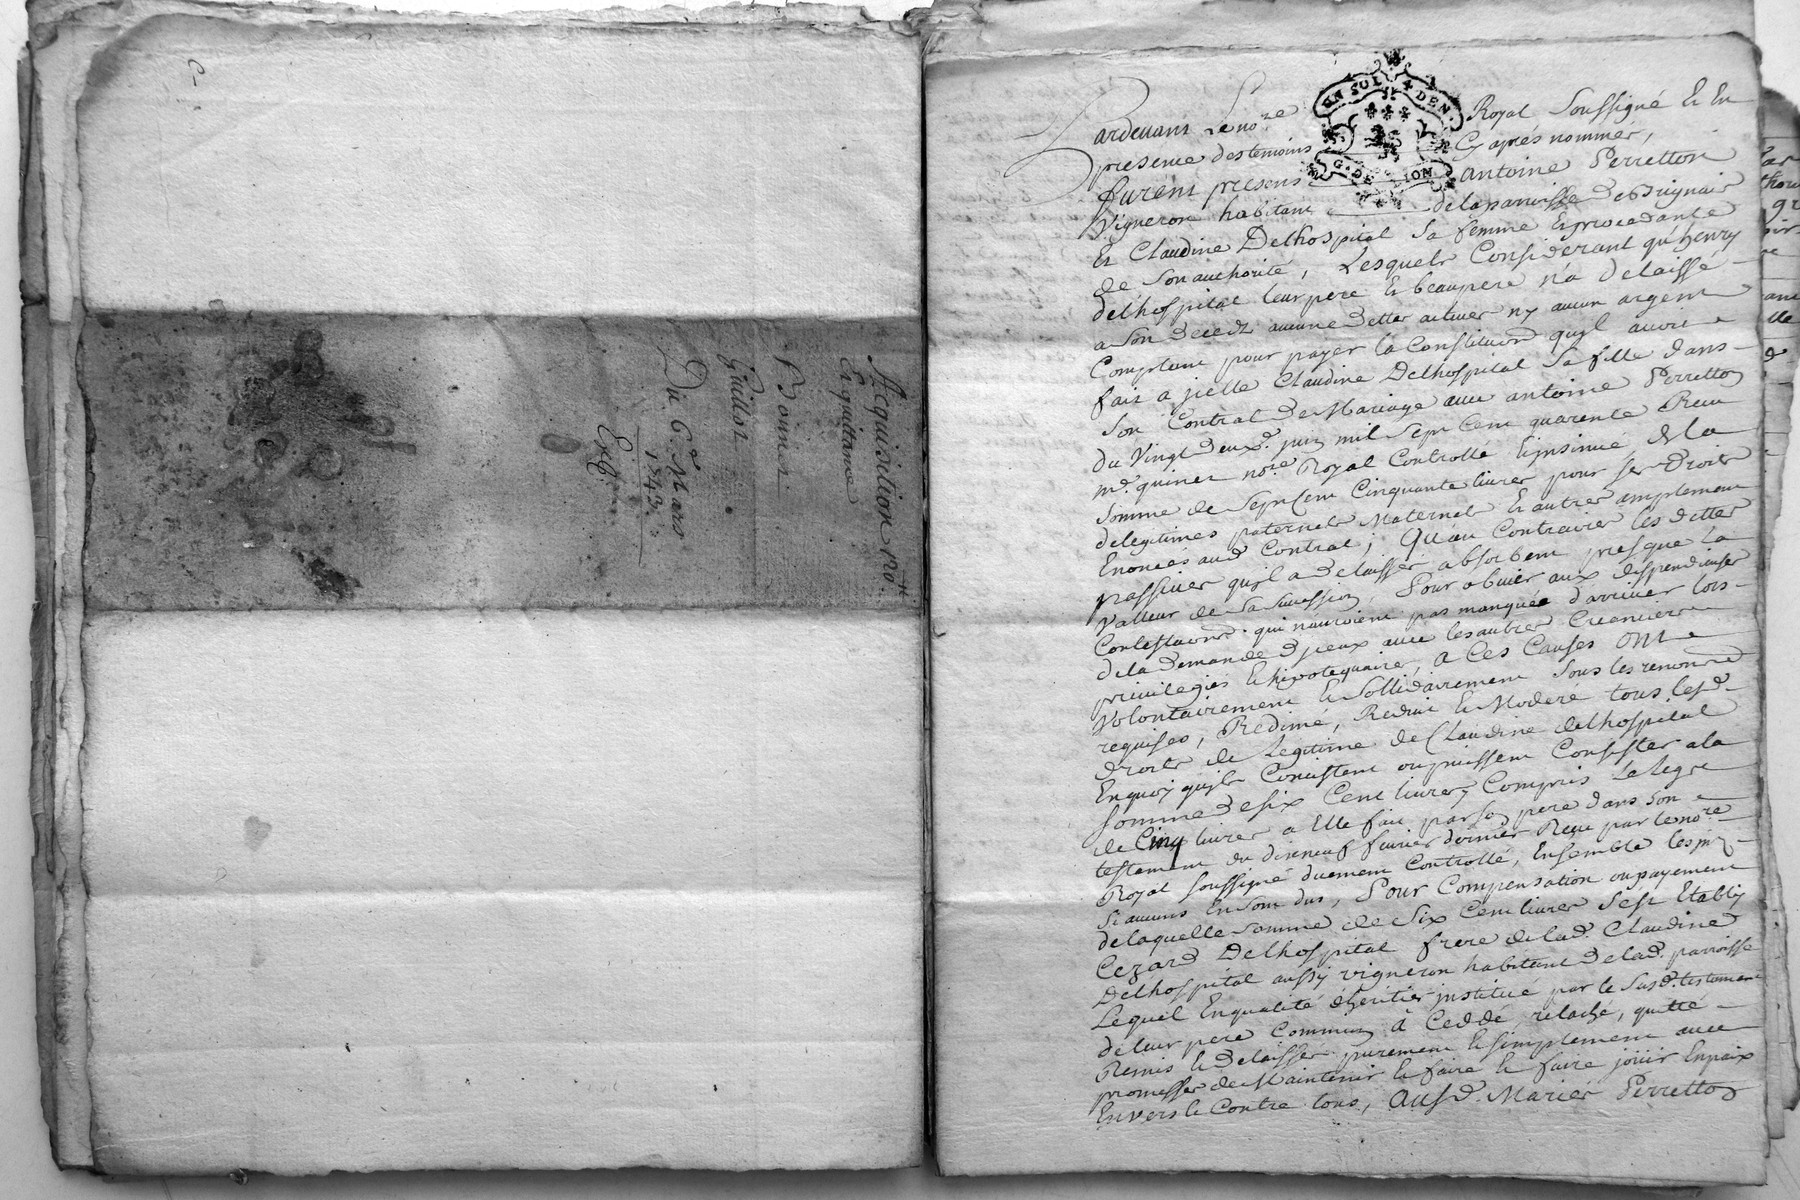 C-
Acquisition
Et quitance
Pour
Du 6e. Mars
1743.
UN SOL 4 DEN.
G. DE LION
Pardevant Le no.re Royal Soussigné Et En
presence des temoins Cy aprés nommér,
furent presens Antoine Perretton
Vigneron habitant de la parroisse de Brignair
Et Claudine Delhospital Sa femme Et procedante
de Son authorité, Lesquels Considerant qu'henry
delhospital leur pere Et beaupere n'a delaissé
a Son decedz aucune detter activer ny aucun argent
Comptant pour payer la Constitution qu'yl avoit
fait a jcelle Claudine Delhospital Sa fille dans
Son Contrat de Mariage avec antoine Perretton
du Vingt deuxe. juin mil Sept Cent quarente Receu
me. quinet no.re Royal Controllé Et jnsinué de la
Somme de Sept Cent Cinquante livrer pour Ser Droitr
de legitimes paternelr Maternelr Et autrer amplement
Enoncés aud. Contrat; Qu'au Contraire les detter
passiver qu'yl a delaissér absorbent presque la
Valleur de Sa Succession, Pour obvier aux dispendieuser
Contestations qui n'auroient pas manquée d'arriver lors
de la demande d'jceux avec les autrer Creancierr
privilegiés Et hipotequairer, A Ces Causes ONt
Volontairement Et Sollidairement Sous les renond.
requises, Redimé, Reduit Et Moderé tous lesd.
droits de Legitime de Claudine delhospital
En quoy qu'ylr Concistent ou puissent Consister a la
Somme de Six Cent livrer, Compris Le legr
de Cinq livrer a Elle fait par Son pere dans Son
testament du dixneuf fevrier dernier Reçu par le no.re
Royal Soussigné duement Controllé, Ensemble les
Si aucuns En Sont dus, Pour Compensation ou payement
de laquelle Somme de Six Cent livrer S'est Etably
Cezard Delhospital frere de lad. Claudine
Delhospital aussy vigneron habitant de lad. parroisse
Lequel En qualité d'heritier jnstitué par le Susd. testament
de leur pere Commun à Ceddé, relaché, quitté
Remis Et delaissér purement Et Simplement avec
promesser de Maintenir Et faire Et faire joüir En paix
Envers Et Contre tous, AuSd. Mariér Perretton